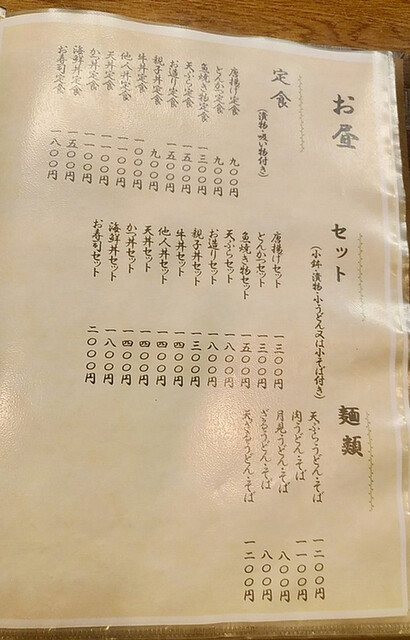 お昼
定食
(漬物・吸い物付き)
唐揚げ定食 九〇〇円
とんかつ定食 九〇〇円
魚焼き物定食 一三〇〇円
天ぷら定食 一五〇〇円
お造り定食 一五〇〇円
親子丼定食 九〇〇円
牛丼定食 一〇〇〇円
他人丼定食 一一〇〇円
天丼定食 一一〇〇円
かつ丼定食 一一〇〇円
海鮮丼定食 一五〇〇円
お寿司定食 一八〇〇円
セット
(小鉢・漬物・小うどん又は小そば付き)
唐揚げセット 一三〇〇円
とんかつセット 一三〇〇円
魚焼き物セット 一五〇〇円
天ぷらセット 一八〇〇円
お造りセット 一八〇〇円
親子丼セット 一三〇〇円
牛丼セット 一四〇〇円
他人丼セット 一四〇〇円
天丼セット 一四〇〇円
かつ丼セット 一四〇〇円
海鮮丼セット 一八〇〇円
お寿司セット 二〇〇〇円
麺類
天ぷらうどん・そば 一二〇〇円
肉うどん・そば 一一〇〇円
月見うどん・そば 八〇〇円
ざるうどん・そば 八〇〇円
天ざるうどん・そば 一二〇〇円